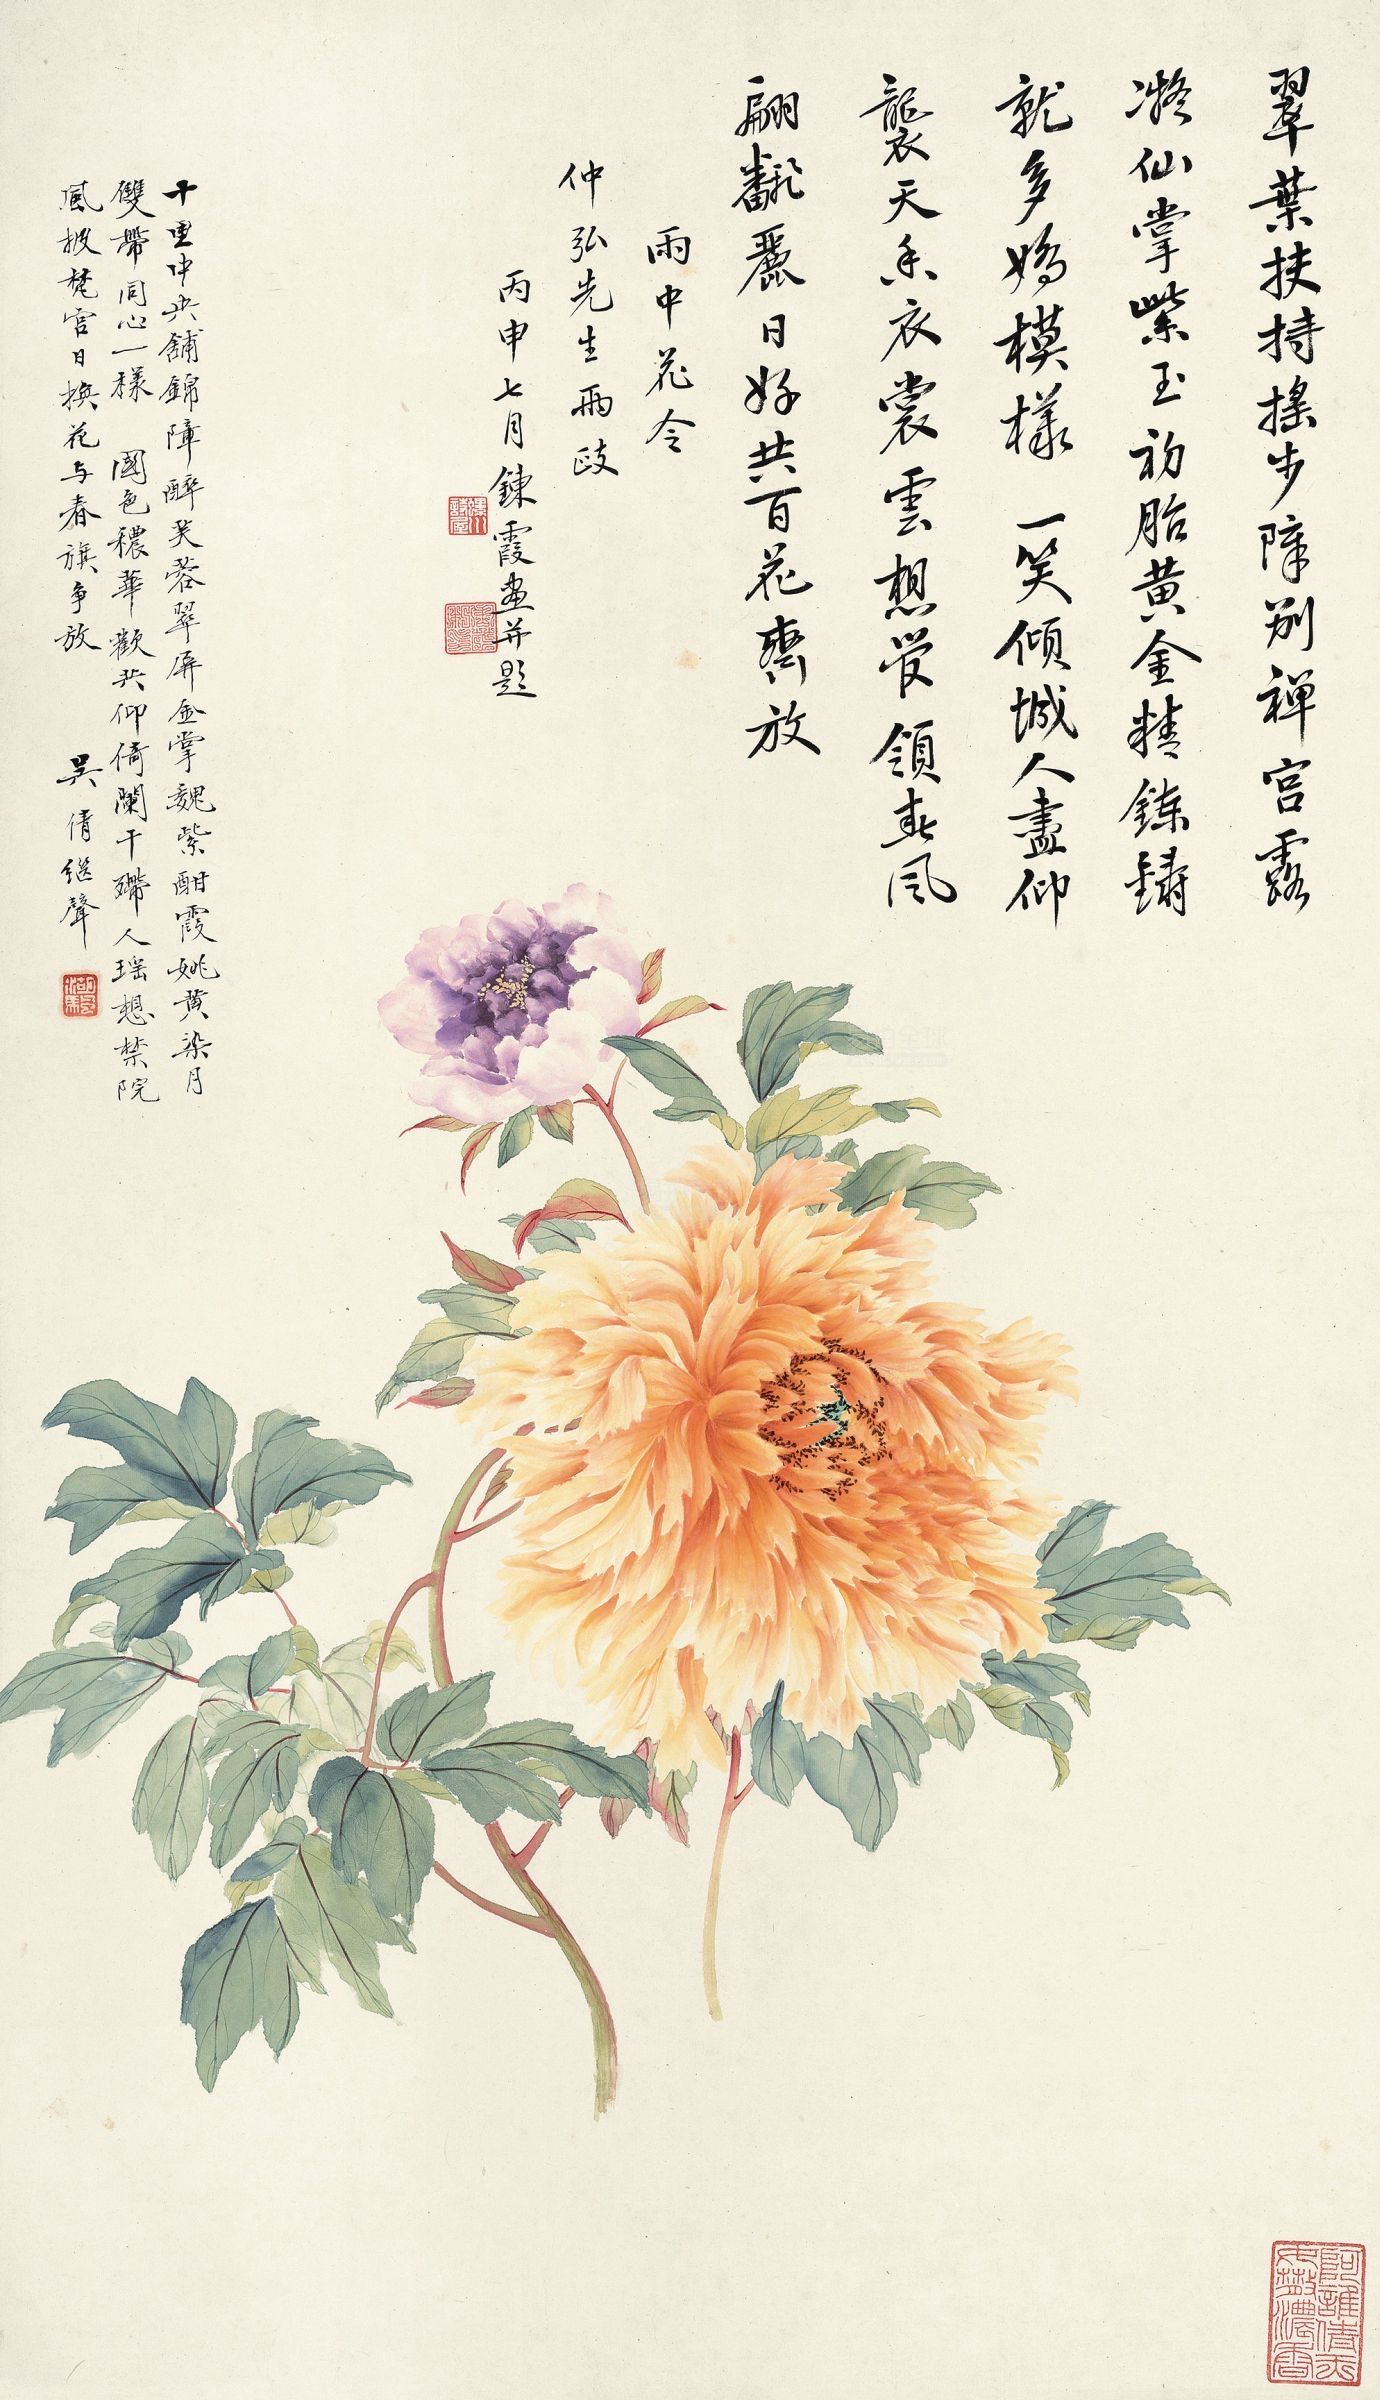 翠葉扶持搖步障別禪宮露
凝仙掌紫玉初胎黄金精鍊鑄
就多嬌模樣 一笑傾城人盡仰
襲衣天香衣裳雲想管領春風
翩翻麗日好共百花齊放
雨中花令
仲弘先生兩政
丙申七月鍊霞畫并題
千重中央鋪錦障醉芙蓉翠屏金掌魏紫酣霞姚黄染月
雙帶同心一樣 國色穠華歡共仰倚闌干殢人瑶想禁院
風披梵宮日換花与春旗爭放
吳倩繼聲